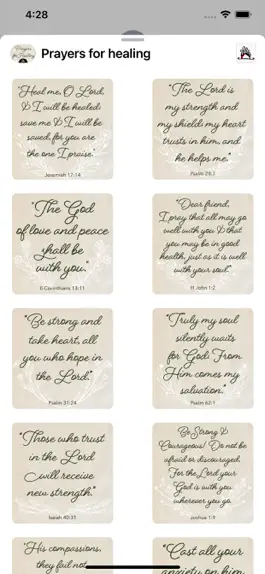 4:28
Prayers for healing
"Heal me, O Lord,
& I will be healed;
save me & I will be
saved, for you are
the one I praise."
Jeremiah 17:14
"The Lord is
my strength and
my shield; my heart
trusts in him, and
he helps me."
Psalm 28:7
"The God
of love and peace
shall be
with you."
II Corinthians 13:11
"Dear friend,
I pray that all may go
well with you & that
you may be in good
health, just as it is well
with your soul."
III John 1:2
"Be strong and
take heart, all
you who hope in
the Lord."
Psalm 31:24
"Truly my soul
silently waits
for God; From
Him comes my
salvation."
Psalm 62:1
"Those who trust
in the Lord
will receive
new strength."
Isaiah 40:31
Be Strong &
Courageous! Do not be
afraid or discouraged.
For the Lord your
God is with you
wherever you go.
Joshua 1:9
"His compassions,
they fail not.
"Cast all your
anxiety on him